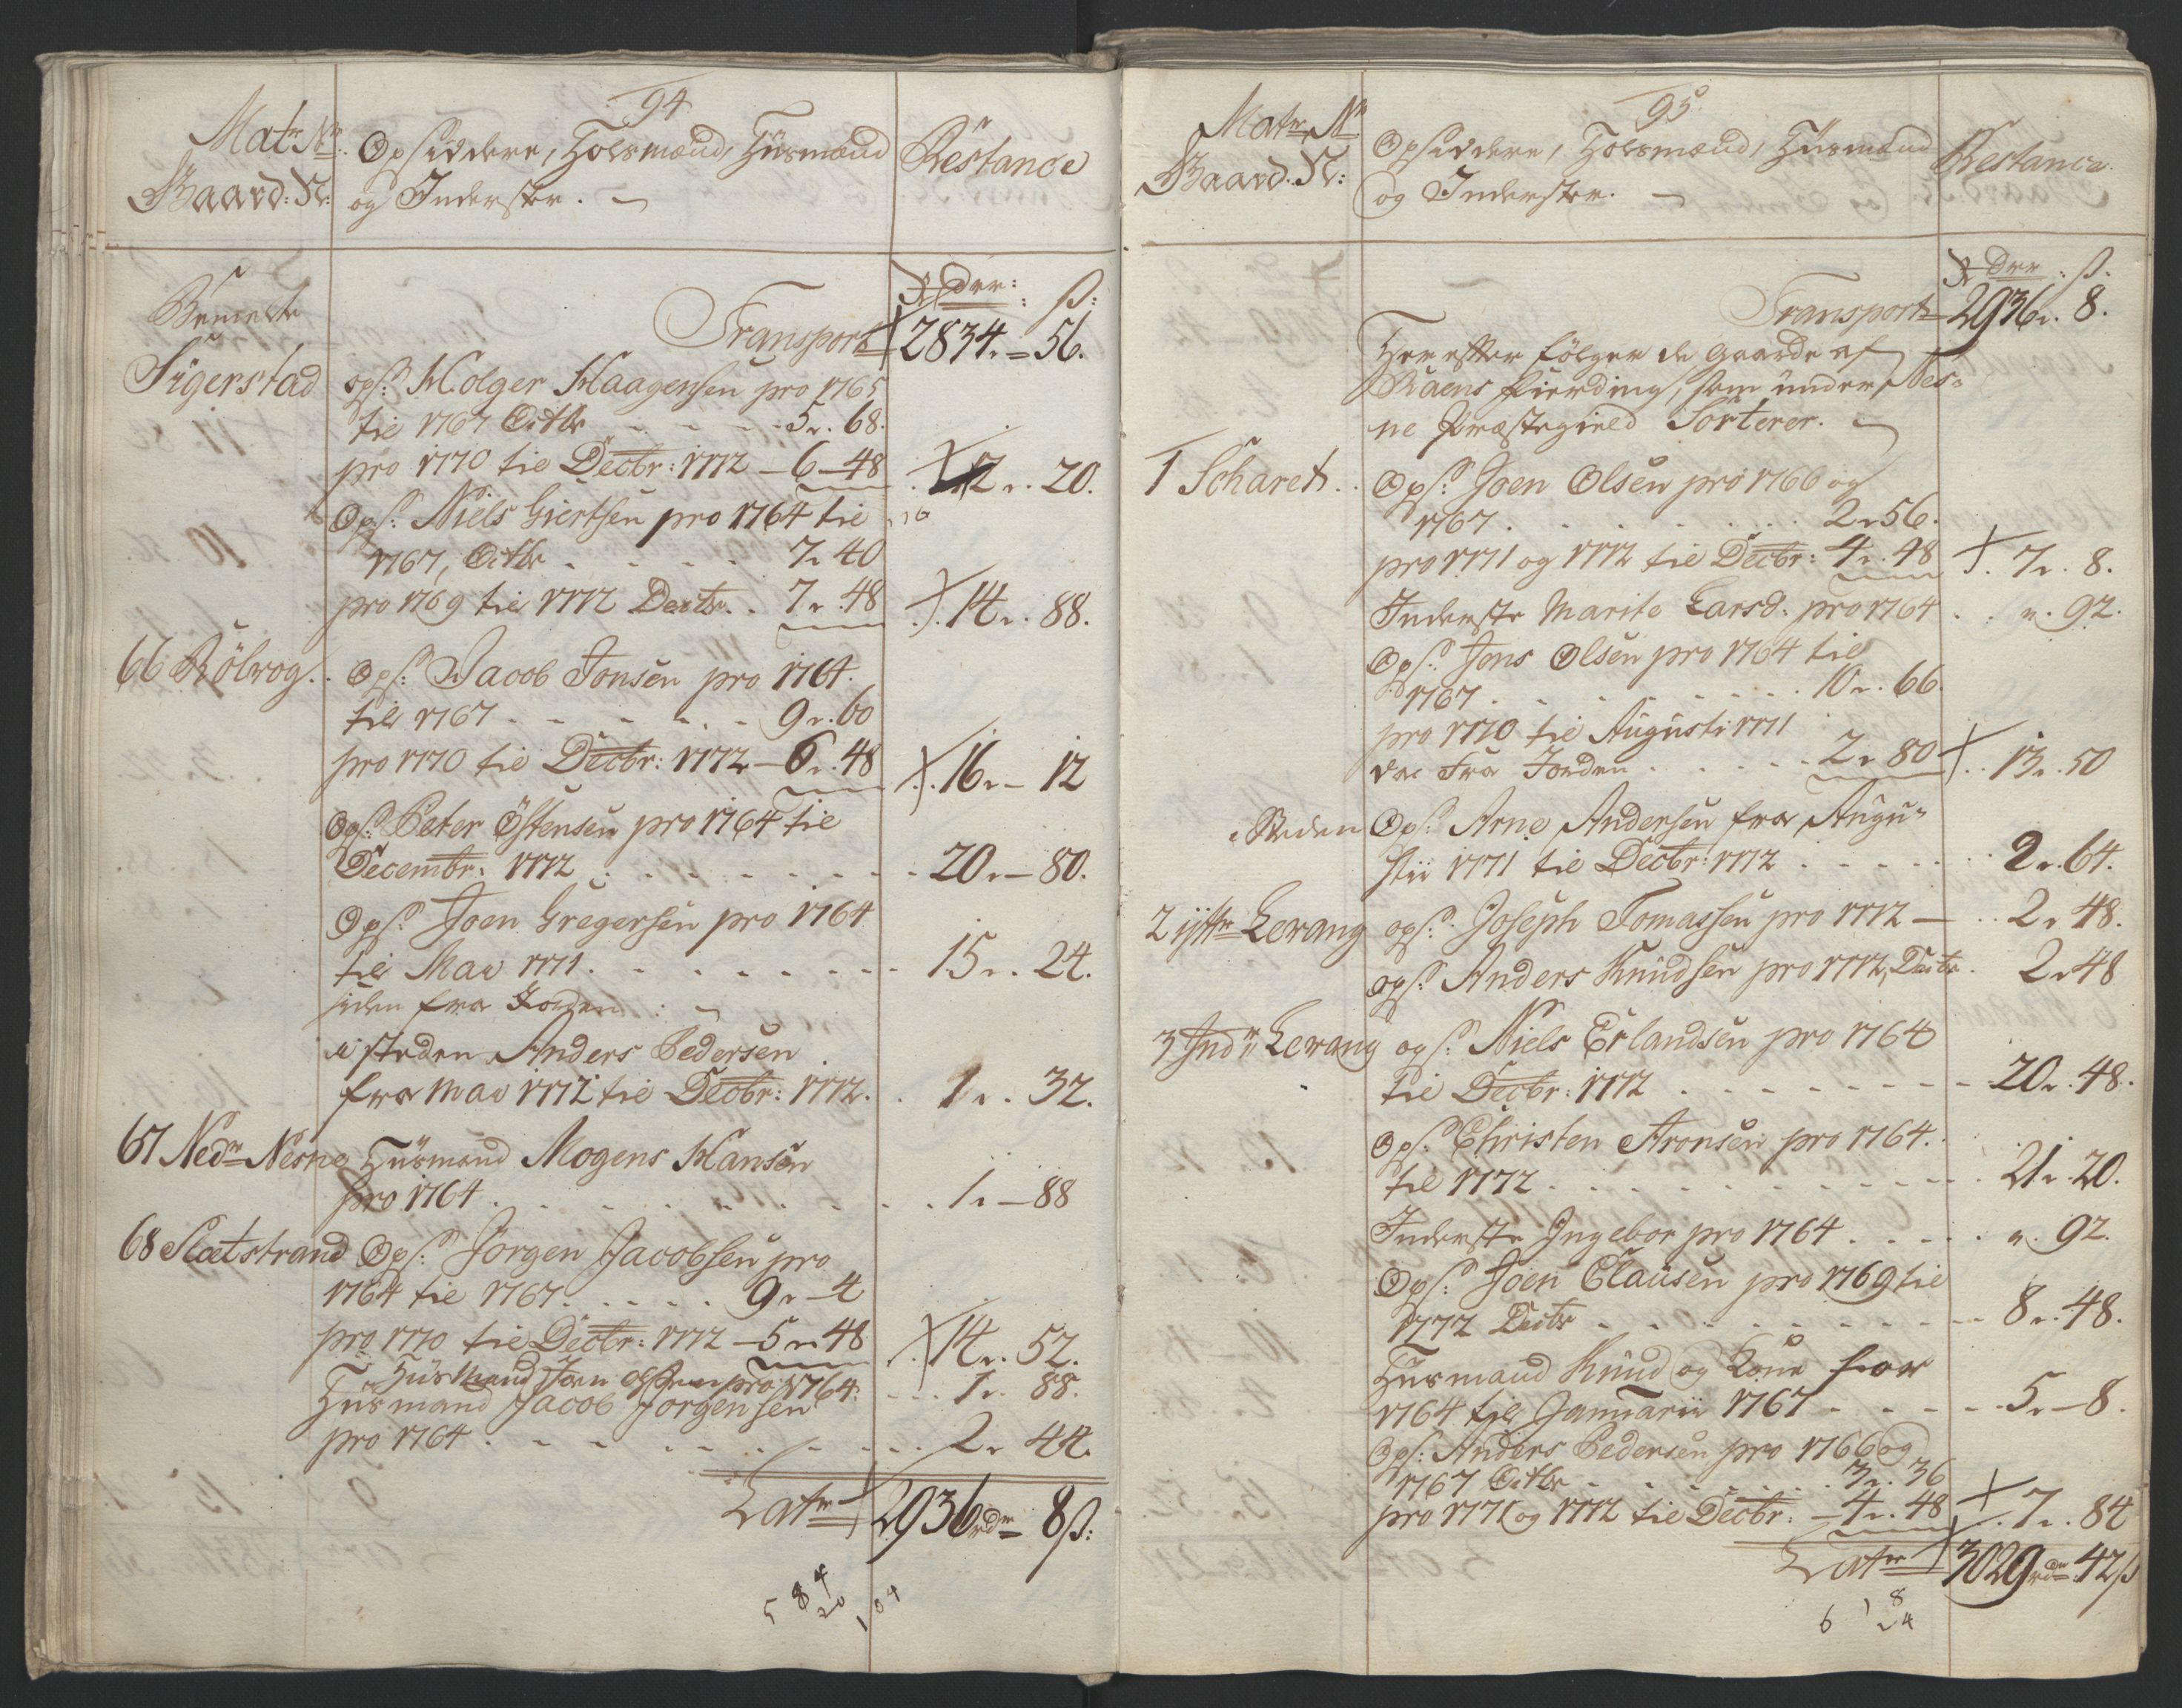 94
Matr N:
Gaard: N:
Opsiddere, Holsmænd, Huusmænd
og Inderster.
Restance
Rdr: ß:
Transport 2834. = 56.
Sigerstad
ops: Holger Haagensen pro 1765
til 1767 Octbr - - - 5 r. 68.
pro 1770 til Decbr: 1772 - 6 - 48 12 r. 20.
Ops: Niels Giertsen pro 1764 til
1767, Octbr . . . . 7 r 40
pro 1769 til 1772 Decbr. . 7 r. 48 14 r. 88.
66 Rölvog. . Ops: Jacob Jonsen pro 1764.
til 1767 - - - - - 9 r. 60
pro 1770 til Decbr: 1772 - 6 r. 48 16 r - 12
Ops: Peter Östensen pro 1764 til
Decembr: 1772 . - - - - - - 20 r - 80.
Ops: Joen Gregersen pro 1764
til May 1771. - - - - - - 15 r. 24.
siden fra Jorden :
i steden Anders Pedersen
fra May 1772 til Decbr: 1772. . 1 r. 32.
67 Nedr Nesne Huusmand Mogens Hansen
pro 1764 . . . . . . . . 1 r - 88
68 Slætstrand Ops: Jörgen Jacobsen pro
1764 til 1767. . . . . . 9 r - 4
pro 1770 til Decbr: 1772 - 5 r 48 14 r. 52.
Huusmand Joen Olsen pro 1764. - - . 1 r. 88.
Huusmand Jacob Jörgensen
pro 1764 . - - - - - - - . . 2 r 44.
Latr 2936 rdr - 8 ß:
95.
Matr N
Gaard. N:
Opsiddere, Holsmænd, Huusmænd
og Inderster.
Restance.
Rdr : ß.
Transport 2936 r. 8.
Her efter fölger de gaarde af
Raens fierding, som under Nes=
ne Præstegield Sorterer.
1 Scharet. . Ops: Joen Olsen pro 1766 og
1767 . . . . . . . . . 2 r 56.
pro 1771 og 1772 til Decbr: 4 r. 48 7 r. 8.
Inderste Marite Larsd: pro 1764 . . r. 92.
Ops: Jens Olsen pro 1764 til
1767 . . . . . . . . . 10 r. 66.
pro 1770 til Augusti 1771
da fra Jorden . . . . . 2 r 80 13 r. 50
i Steden Ops: Arne Andersen fra Augu-
stii 1771 til Decbr: 1772 . - - - - . . 2 r. 64.
2 ytr Levang ops: Joseph Tomassen pro 1772 - . . 2 r 48.
ops: Anders Knudsen pro 1772, Decbr . 2 r 48
3 Indr Levang ops: Niels Erlandsen pro 1764
til Decbr: 1772 . - - - - - - - - 20 r. 48.
Ops: Christen Aronsen pro 1764.
til 1772 . . . . . . . . - - . 21 r. 20.
Inderste Ingebor pro 1764 . . . . . r. 92.
Ops: Joen Clausen pro 1769 til
1772 Decbr - - - - - - - - - - 8 r. 48.
Huusmand Knud og Kone for
1764 til Januarii 1767 - - - - - 5 r - 8.
Ops: Anders Pedersen pro 1766 og
1767 Octbr - . - - . . . 3 r. 36
pro 1771 og 1772 til Decbr: - 4 r. 48 7 r. 84
Latr 3029 rdr. 42 ß